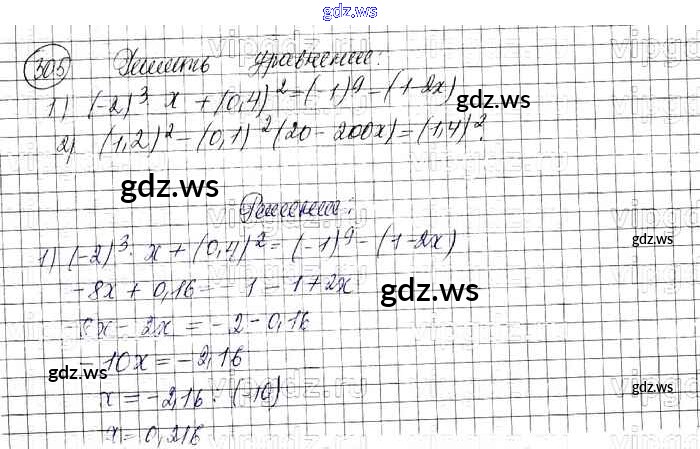 gdz.ws
305 Решить уравнение:
1) (-2)³ x + (0,4)² = (-1)⁹ - (1-2x)
gdz.ws
2) (1,2)² - (0,1)² (20 - 200x) = (1,4)².
gdz.ws
Решение:
gdz.ws
1) (-2)³ · x + (0,4)² = (-1)⁹ - (1-2x)
-8x + 0,16 = -1 - 1 + 2x
gdz.ws
-8x - 2x = -2 - 0,16
-10x = -2,16
gdz.ws
gdz.ws
x = -2,16 : (-10)
x = 0,216